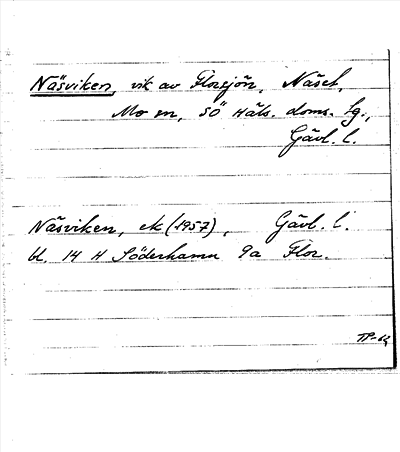 Näsviken, vik av Florsjön, Näset,
Mo sn, SÖ Häls. doms. lg.,
Gävl. l.
Näsviken, ek (1957), Gävl. l.
bl. 14 H Söderhamn 9a Flor.